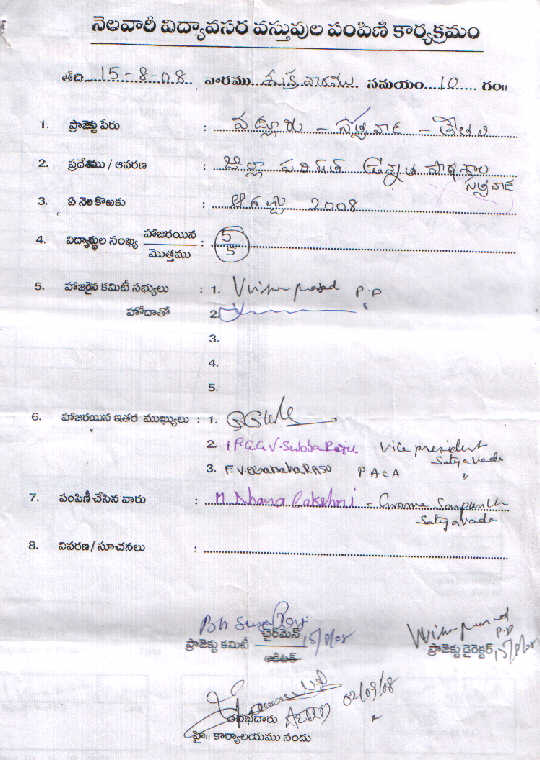 నెలవారీ విద్యావసర వస్తువుల పంపిణి కార్యక్రమం
తేది 15-8-08 వారము శుక్రవారము సమయం 10 గం॥
1. ప్రాజెక్టు పేరు : - సత్యవాడ -
2. ప్రదేశము / ఆవరణ : జిల్లా పరిషత్ ఉన్నత పాఠశాల
సత్యవాడ
3. ఏ నెల కొరకు : ఆగష్టు 2008
4. విద్యార్థుల సంఖ్య హాజరయిన : 5
మొత్తము 5
5. హాజరైన కమిటీ సభ్యులు : 1. Vishnu prasad P.D
హోదాతో 2.
3.
4.
5.
6. హాజరయిన ఇతర ముఖ్యులు : 1.
2. V. Subba Raju Vice president
Satyavada
3.
7. పంపిణీ చేసిన వారు : M Dhana Lakshmi -
Satyavada
8. వివరణ / సూచనలు :
చైర్మెన్ 15/8/08
ప్రాజెక్టు కమిటీ
Vishnu prasad
P.D
ప్రాజెక్టు డైరెక్టర్ 15/8/08
02/09/08
కార్యాలయము నందు